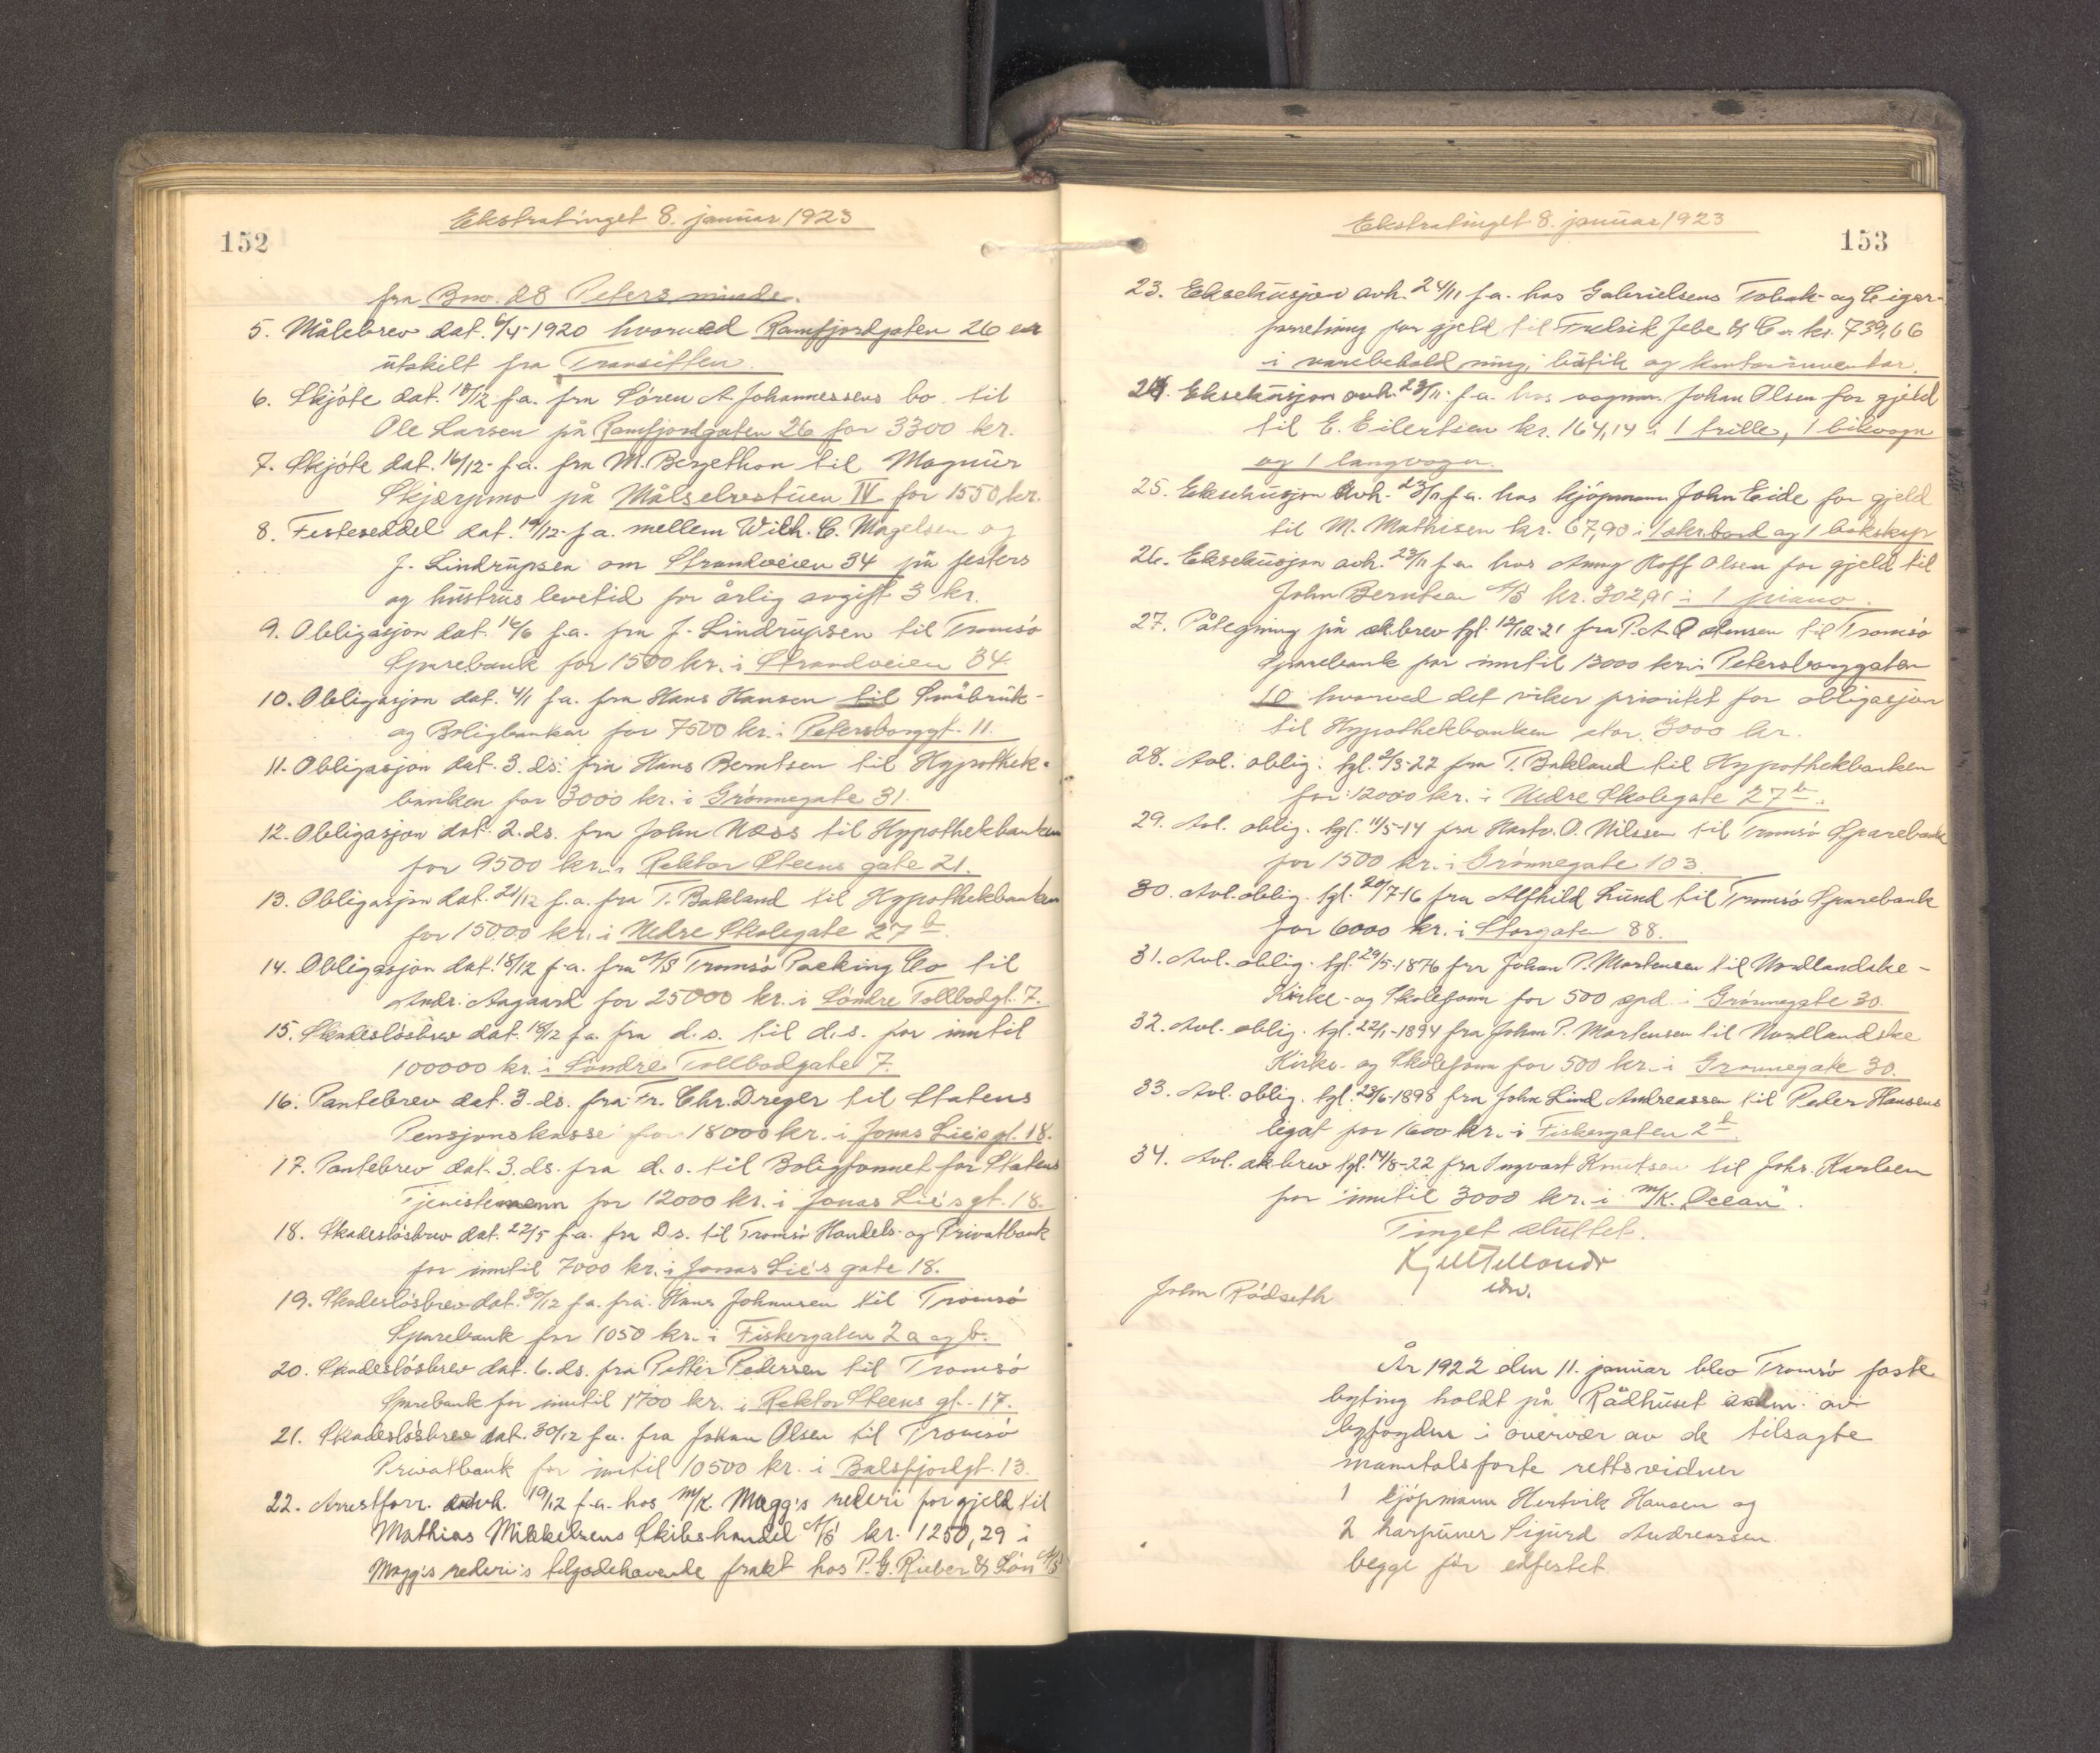 152
Ekstratinget 8. januar 1923
fra Bno. 28 Petersminde.
5. Målebrev dat. 6/4-1920 hvorved Ramfjordgaten 26 er
utskilt fra Transitten.
6. Skjöte dat. 18/12 f.a. fra Sören A. Johannessens bo til
Ole Larsen på Ramfjordgaten 26 for 3300 kr.
7. Skjöte dat. 16/12- f.a. fra M. Bergethon til Magnus
Skjærpmo på Målselvstuen IV for 1550 kr.
8. Festeseddel dat. 19/12- f.a. mellem Wilh. C. Magelsen og
J. Lindrupsen om Strandveien 34 på festers
og hustrus levetid for årlig avgift 3 kr.
9. Obligasjon dat. 16/6 f.a. fra J. Lindrupsen til Tromsö
Sparebank for 1500 kr. i Strandveien 34.
10. Obligasjon dat. 4/1 f.a. fra Hans Hansen til Småbruk-
og Boligbanken for 7500 kr. i Petersborggt. 11.
11. Obligasjon dat. 3. ds. fra Hans Berntsen til Hypothek-
banken for 3000 kr. i Grönnegate 31.
12. Obligasjon dat. 2. ds. fra John Næss til Hypothekbanken
for 9500 kr. i Rektor Steens gate 21.
13. Obligasjon dat. 21/12 f.a. fra T. Bakland til Hypothekbanken
for 15000 kr. i Nedre Skolegate 27 b.
14. Obligasjon dat. 18/12 f.a. fra A/S Tromsö Packing Co til
Andr. Aagaard for 25000 kr. i Söndre Tollbodgt. 7.
15. Skadeslösbrev dat. 18/12 f.a. fra d.s. til d.s. for inntil
100000 kr. i Söndre Tollbodgate 7.
16. Pantebrev dat. 3. ds. fra Fr. Chr. Dreyer til Statens
Pensjonskasse for 18000 kr. i Jonas Lie's gt. 18.
17. Pantebrev dat. 3. ds. fra d.s. til Boligfonnet for Statens
Tjenestemenn for 12000 kr. i Jonas Lie's gt. 18.
18. Skadeslösbrev dat. 22/5 f.a. fra D.s. til Tromsö Handels- og Privatbank
for inntil 7000 kr. i Jonas Lie's gate 18.
19. Skadeslösbrev dat. 30/12 f.a. fra Hans Johnsen til Tromsö
Sparebank for 1050 kr. i Fiskergaten 2 a og b.
20. Skadeslösbrev dat. 6. ds. fra Petter Pedersen til Tromsö
Sparebank for inntil 1700 kr. i Rektor Steens gt. 17.
21. Skadeslösbrev dat. 30/12 f.a. fra Johan Olsen til Tromsö
Privatbank for inntil 10500 kr. i Balsfjordgt. 13.
22. Arrestforr. avh. 19/12 f.a. hos M/K Magg's rederi for gjeld til
Mathias Mikkelsens Skibshandel A/S kr. 1250,29 i
Magg's rederi's tilgodehavende frakt hos P. G. Rieber & Sön A/S
153
Ekstratinget 8. januar 1923
23. Eksekusjon avh. 24/11 f.a. hos Gabrielsens Tobak- og Cigar-
forretning for gjeld til Fredrik Jebe & Co kr. 739,66
i varebeholdning, butik og kontorinventar.
24. Eksekusjon avh. 23/11. f.a. hos vognm. Johan Olsen for gjeld
til E. Eilertsen kr. 164,14 i 1 trille, 1 likvogn
og 1 langvogn.
25. Eksekusjon avh. 23/11 f.a. hos kjöpmann John Eide for gjeld
til M. Mathisen kr. 67,90 i 1 skr.bord og 1 bokskap
26. Eksekusjon avh. 23/11 f.a. hos Anny Hoff Olsen for gjeld til
John Berntsen A/S kr. 302,91 i 1 piano.
27. Påtegning på sk.brev tgl. 12/12-21 fra P. A. til Tromsö
Sparebank for inntil 13000 kr. i Petersborggaten
10 hvorved det viker prioritet for obligasjon
til Hypothekbanken stor 3000 kr.
28. Avl. oblig. tgl. 2/3-22 fra T. Bakland til Hypothekbanken
for 12000 kr. i Nedre Skolegate 27 b.
29. Avl. oblig. tgl. 11/5-14 fra Hartv. O. Nilssen til Tromsö Sparebank
for 1500 kr. i Grönnegate 103.
30. Avl. oblig. tgl. 20/7-16 fra Alfhild Lund til Tromsö Sparebank
for 6000 kr. i Storgaten 88.
31. Avl. oblig. tgl. 29/5-1876 fra Johan P. Mortensen til Nordlandske-
Kirke- og Skolefonn for 500 spd. i Grönnegate 30.
32. Avl. oblig. tgl. 22/1-1894 fra John P. Mortensen til Nordlandske
Kirke- og Skolefonn for 500 kr. i Grönnegate 30.
33. Avl. oblig. tgl. 23/6-1898 fra John Lind Andreassen til Peder Hansens
legat for 1600 kr. i Fiskergaten 2 b.
34. Avl. sk.brev tgl. 14/8-22 fra Ingvart Knutsen til Johs. Karlsen
for inntil 3000 kr. i M/K. "Ocean".
Tinget sluttet.
John Rödseth
År 1922 den 11. januar blev Tromsö faste
byting holdt på Rådhuset adm. av
byfogden i overvær av de tilsagte
manntalsförte rettsvidner
1 kjöpmann Hertvik Hansen og
2 harpuner Sigurd Andreassen
begge för edfestet.